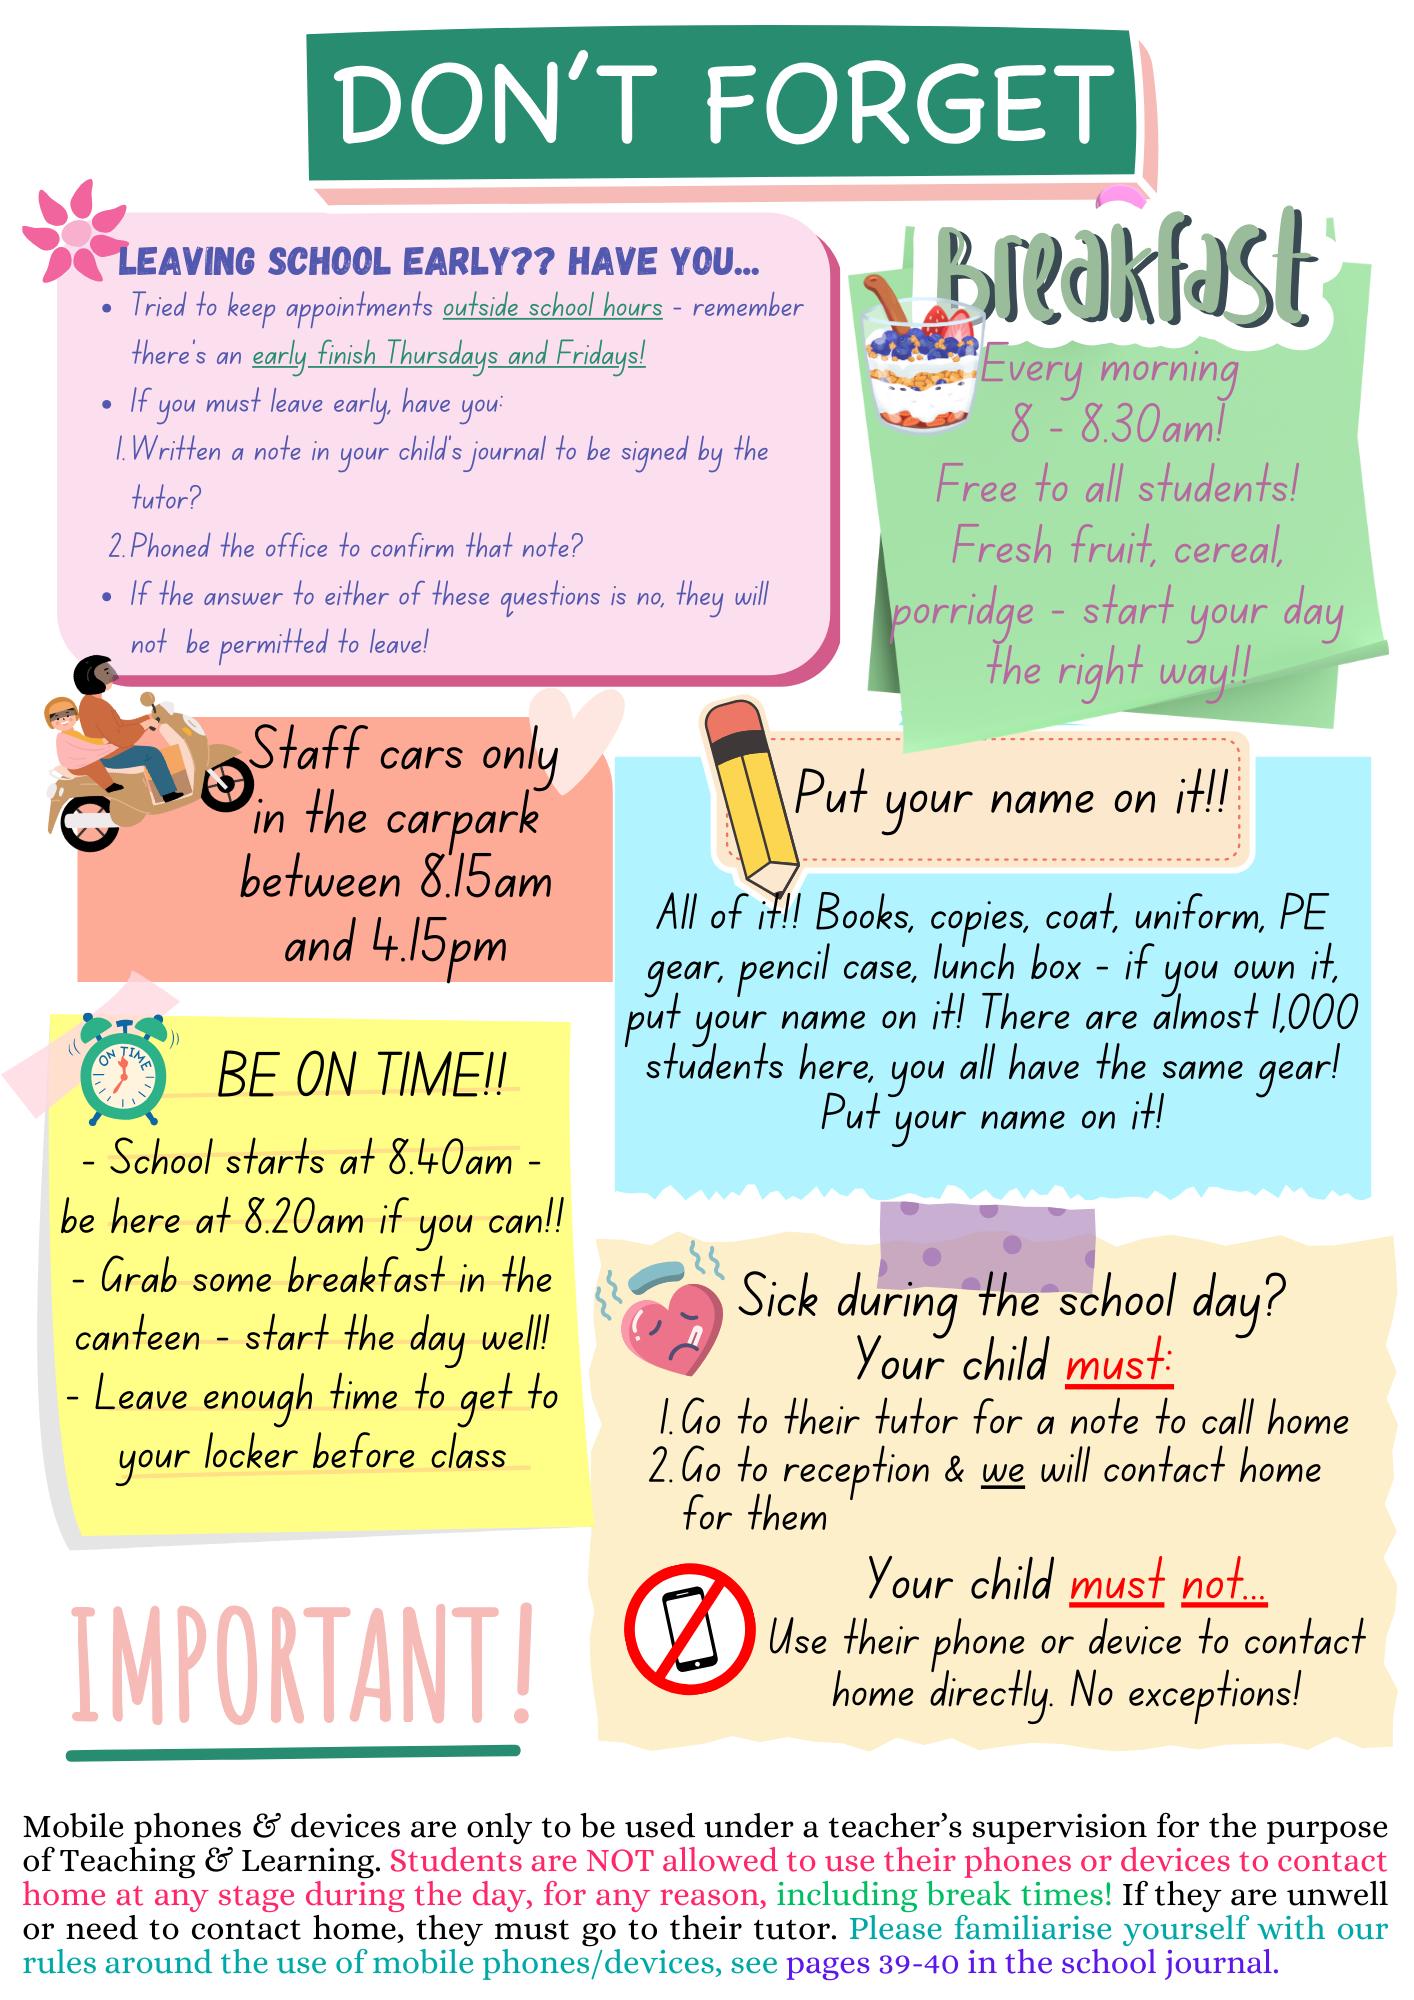 DON'T FORGET
LEAVING SCHOOL EARLY?? HAVE YOU...
• Tried to keep appointments outside school hours - remember
there's an early finish Thursdays and Fridays!
• If you must leave early, have you:
1. Written a note in your child's journal to be signed by the
tutor?
2. Phoned the office to confirm that note?
• If the answer to either of these questions is no, they will
not be permitted to leave!
Breakfast
Every morning
8 - 8.30am!
Free to all students!
Fresh fruit, cereal,
porridge - start your day
the right way!!
Staff cars only
in the carpark
between 8.15am
and 4.15pm
Put your name on it!!
All of it!! Books, copies, coat, uniform, PE
gear, pencil case, lunch box - if you own it,
put your name on it! There are almost 1,000
students here, you all have the same gear!
Put your name on it!
ON TIME
BE ON TIME!!
- School starts at 8.40am -
be here at 8.20am if you can!!
- Grab some breakfast in the
canteen - start the day well!
- Leave enough time to get to
your locker before class
Sick during the school day?
Your child must:
1. Go to their tutor for a note to call home
2. Go to reception & we will contact home
for them
Your child must not...
Use their phone or device to contact
home directly. No exceptions!
IMPORTANT!
Mobile phones & devices are only to be used under a teacher's supervision for the purpose
of Teaching & Learning. Students are NOT allowed to use their phones or devices to contact
home at any stage during the day, for any reason, including break times! If they are unwell
or need to contact home, they must go to their tutor. Please familiarise yourself with our
rules around the use of mobile phones/devices, see pages 39-40 in the school journal.